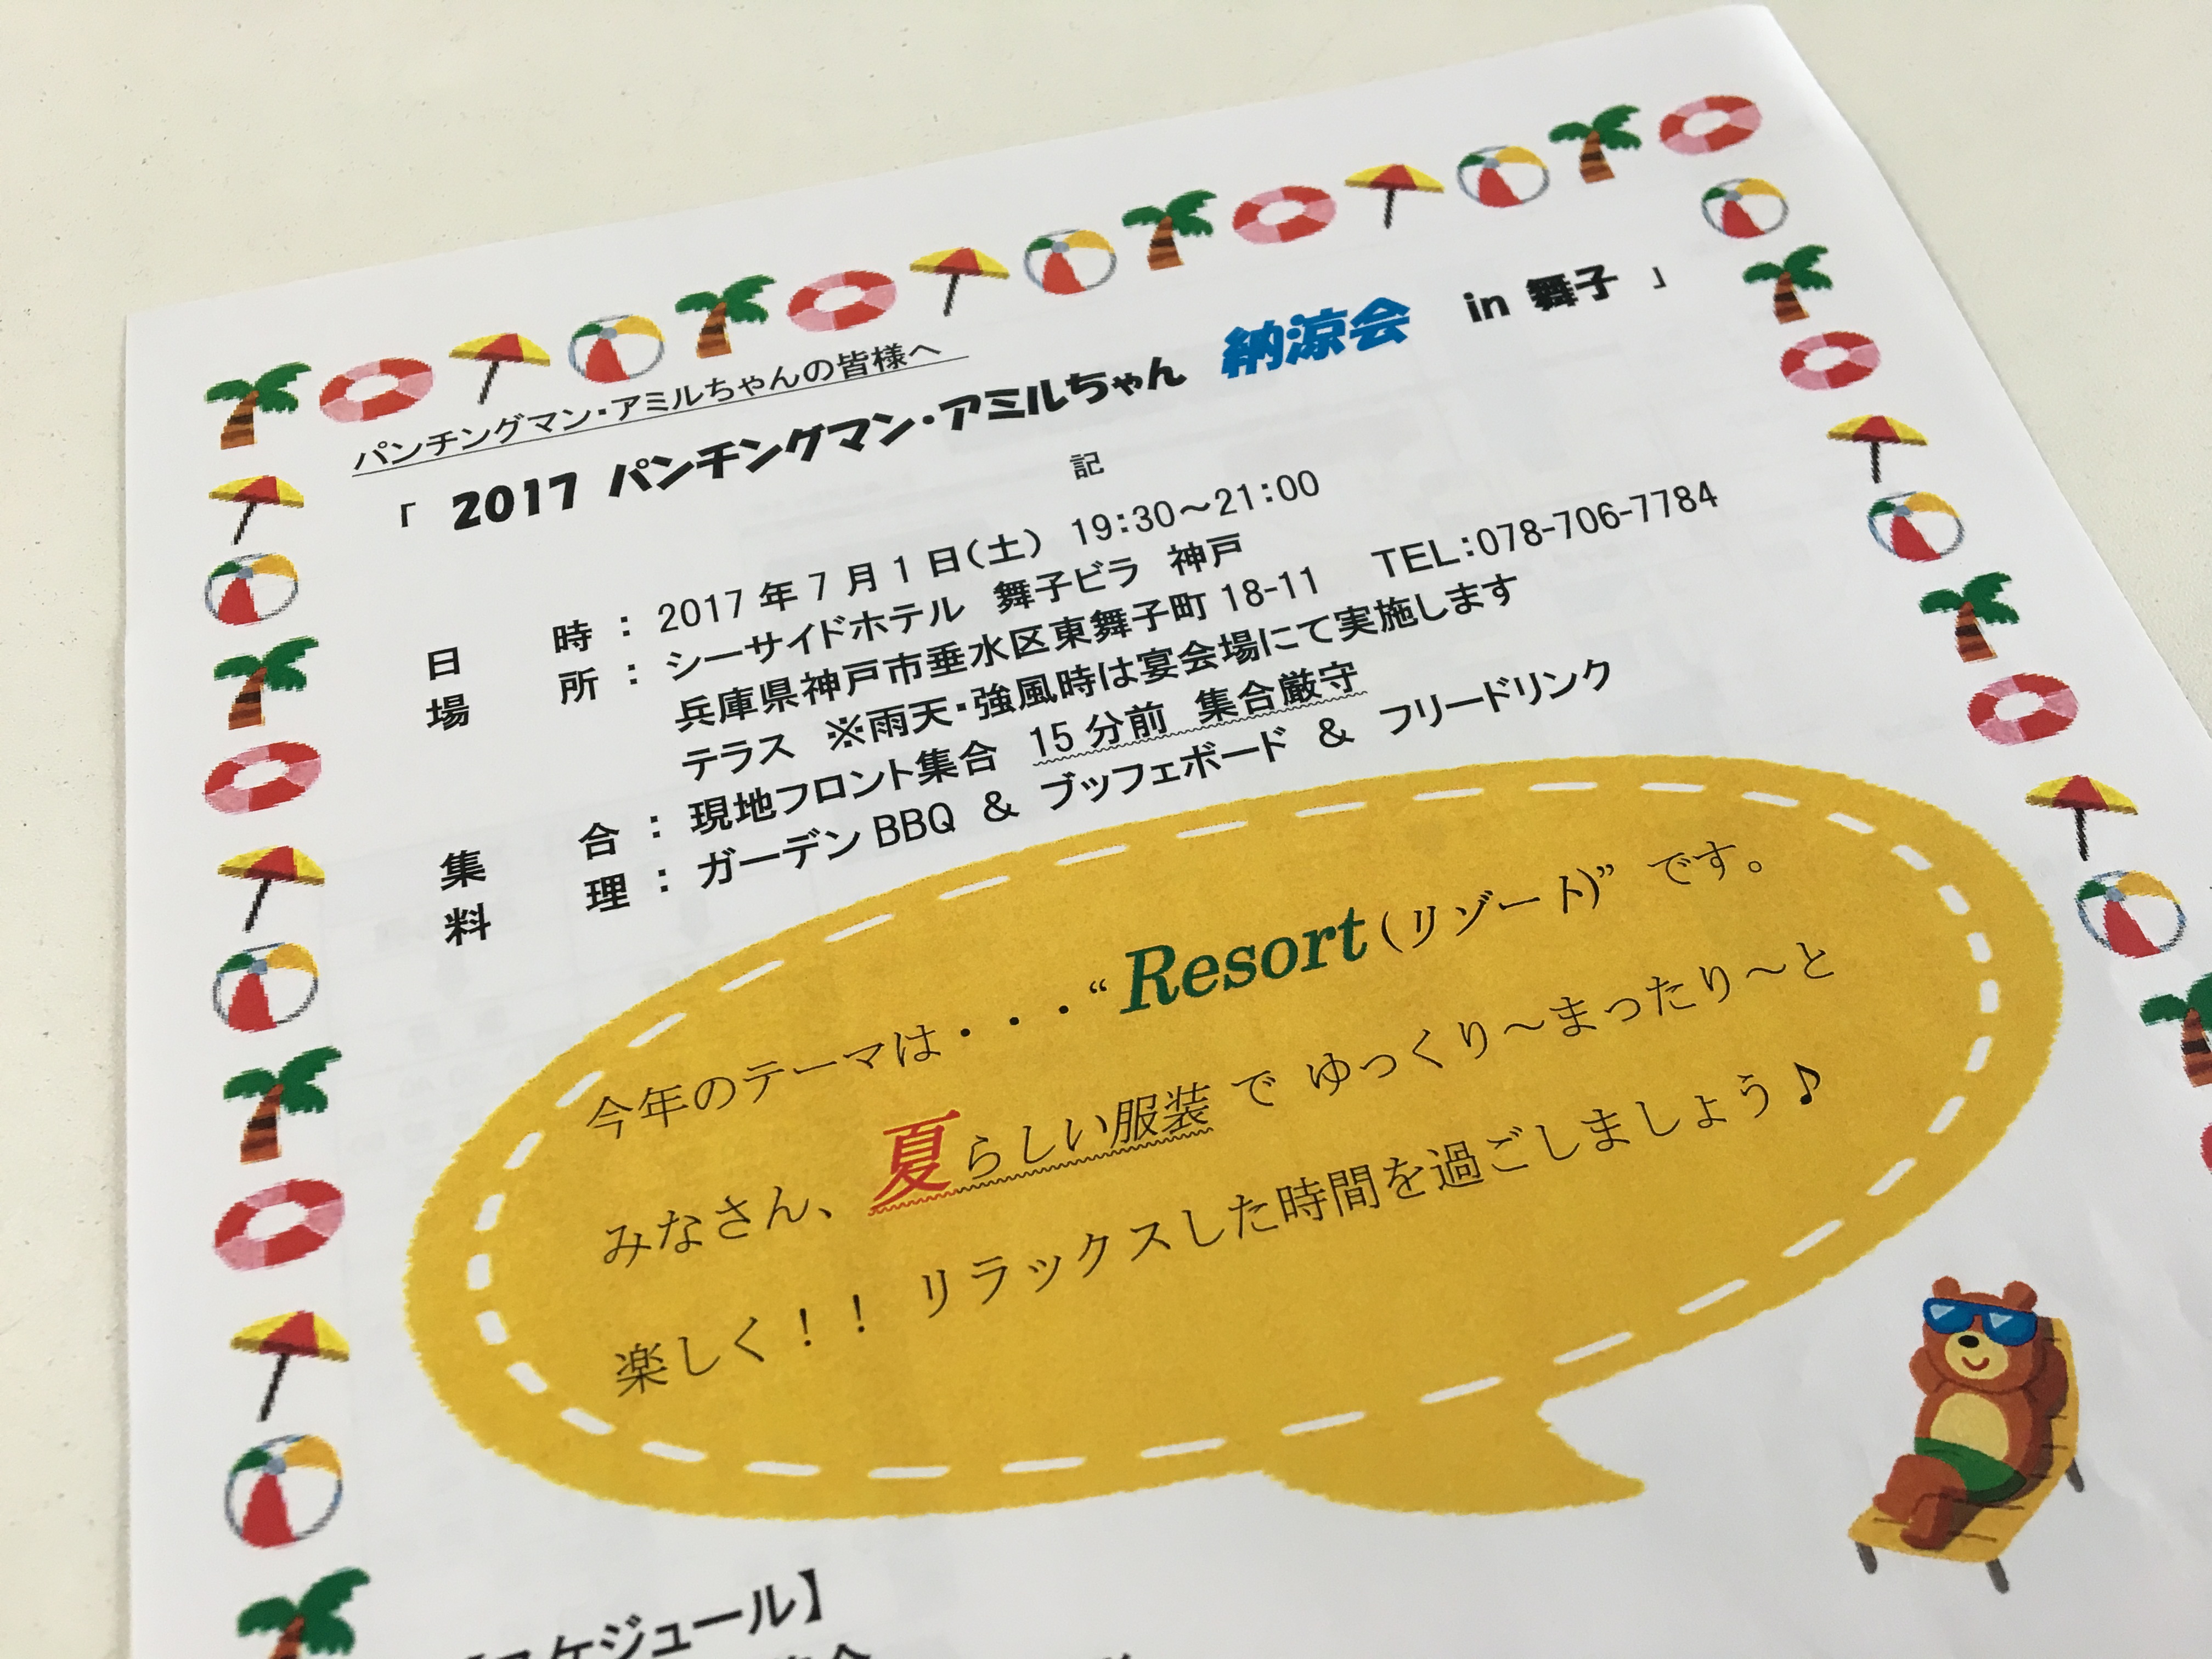 パンチングマン・アミルちゃんの皆様へ
「 2017 パンチングマン・アミルちゃん 納涼会 in 舞子 」
記
日 時 : 2017年7月1日(土) 19:30~21:00
場 所 : シーサイドホテル 舞子ビラ 神戸
兵庫県神戸市垂水区東舞子町18-11 TEL:078-706-7784
テラス ※雨天・強風時は宴会場にて実施します
集 合 : 現地フロント集合 15分前 集合厳守
料 理 : ガーデンBBQ & ブッフェボード & フリードリンク
今年のテーマは・・・“Resort(リゾート)” です。
みなさん、夏らしい服装で ゆっくり~まったり~と
楽しく!! リラックスした時間を過ごしましょう♪
スケジュール】